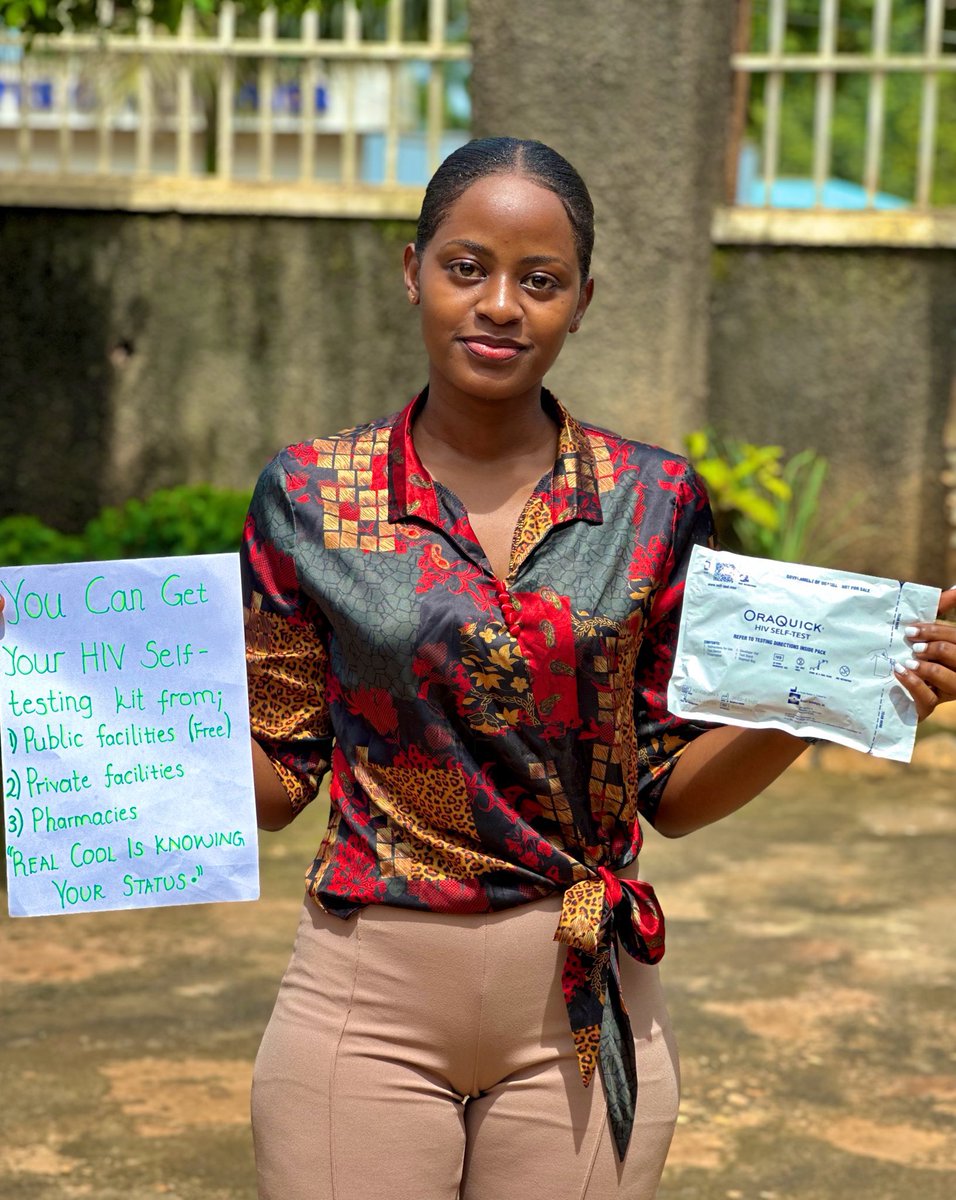 You Can Get
Your HIV Self-
testing kit from;
1) Public facilities (Free)
2) Private facilities
3) Pharmacies
"REAL COOL IS KNOWING
YOUR STATUS."
NOT FOR SALE
ORAQUICK
HIV SELF-TEST
REFER TO TESTING DIRECTIONS INSIDE PACK
CONTENTS: